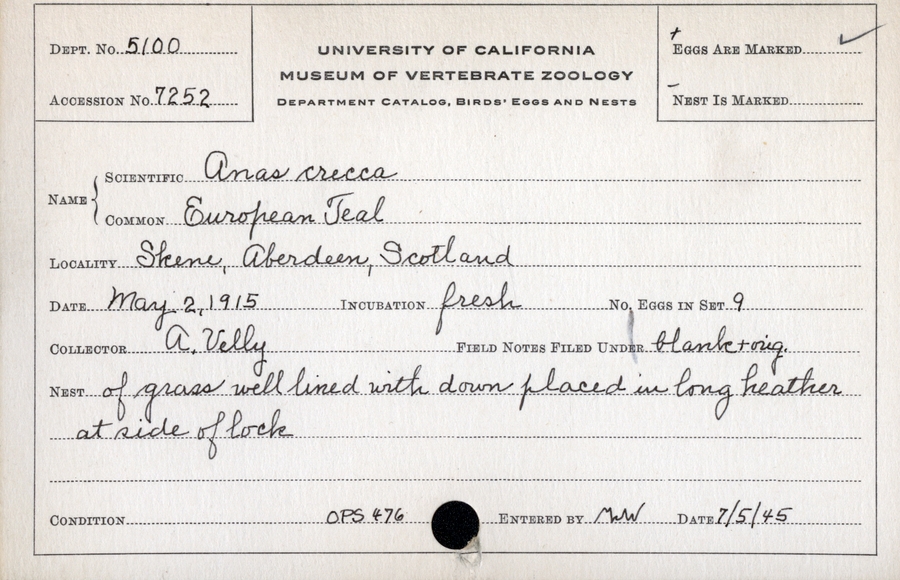 DEPT. No. 5100
UNIVERSITY OF CALIFORNIA
+ EGGS ARE MARKED ✓
MUSEUM OF VERTEBRATE ZOOLOGY
ACCESSION No. 7252
DEPARTMENT CATALOG, BIRDS' EGGS AND NESTS
- NEST IS MARKED
NAME { SCIENTIFIC Anas crecca
COMMON European Teal
LOCALITY Skene, Aberdeen, Scotland
DATE May 2, 1915 INCUBATION fresh No. EGGS IN SET 9
COLLECTOR A. Velly FIELD NOTES FILED UNDER blank + orig.
NEST of grass well lined with down placed in long heather
at side of lock
CONDITION OPS 476 ENTERED BY MW DATE 7/5/45